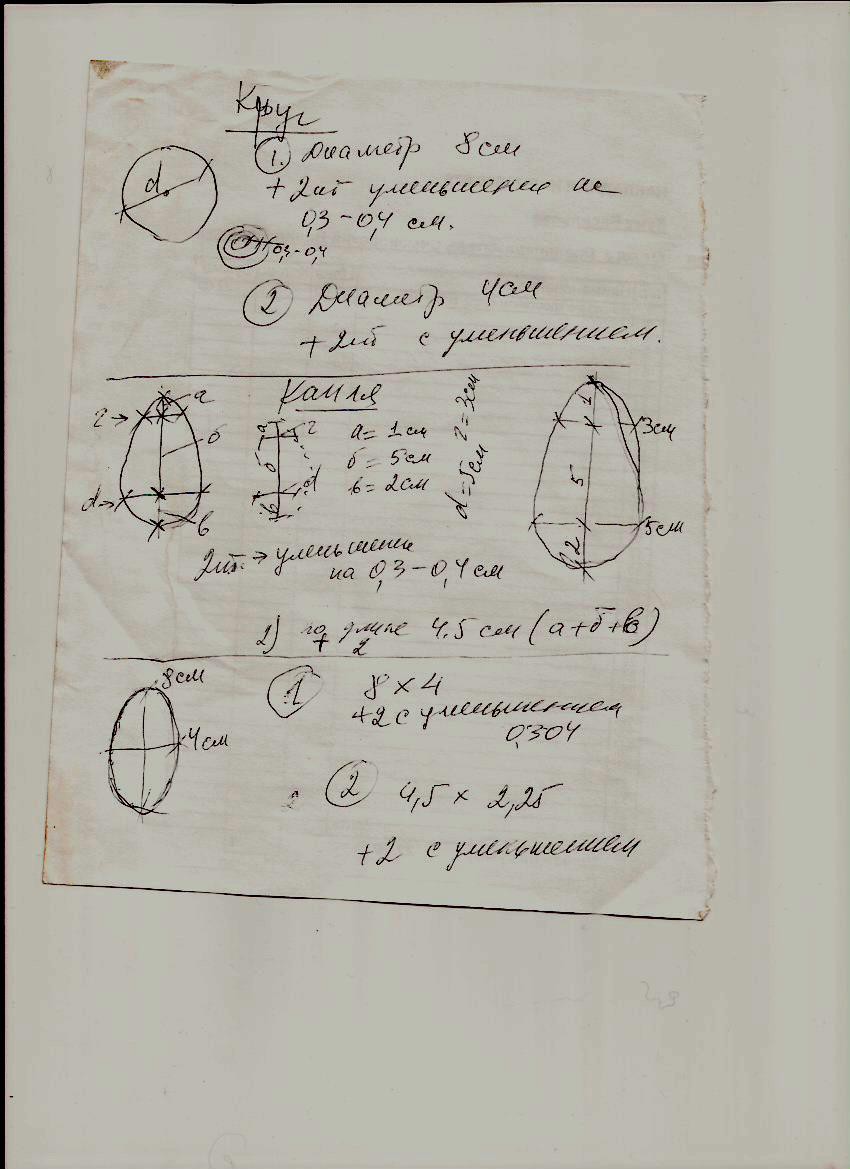 Круг
d
1. Диаметр 8см
+ 2шт уменьшение на
0,3-0,4 см.
0,3-0,4
2 Диаметр 4см
+ 2шт с уменьшением.
Капля
а
г →
б
d →
в
а
г
б
d
в
а = 1см
б = 5см
в = 2см
г = 3см
d = 5см
1
3см
5
5см
2
2шт. → уменьшение
на 0,3-0,4 см
2) по длине 4.5 см (а+б+в)
+ 2
8см
4см
1 8 × 4
+2 с уменьшением
0,304
2 4,5 × 2,25
+2 с уменьшением